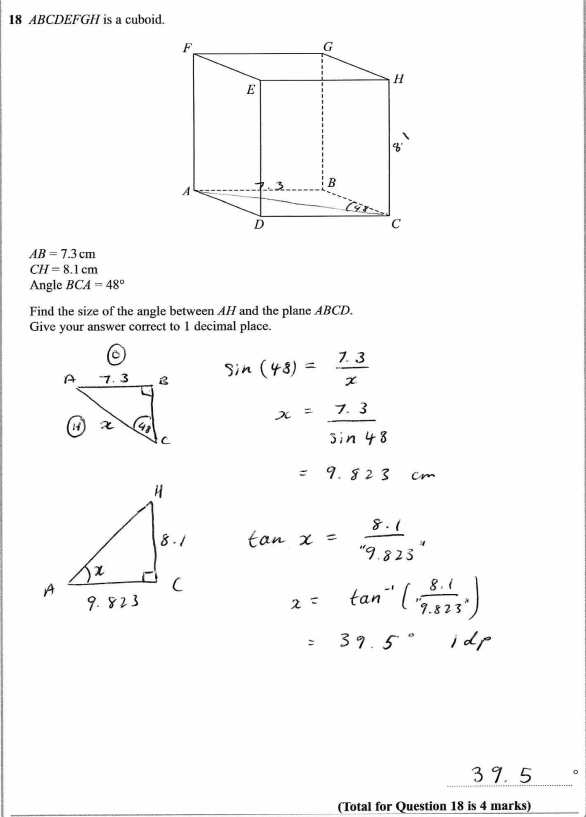 18 ABCDEFGH is a cuboid.
F G
E H
8'
A 7.3 B
48
D C
AB = 7.3 cm
CH = 8.1 cm
Angle BCA = 48°
Find the size of the angle between AH and the plane ABCD.
Give your answer correct to 1 decimal place.
O
A 7.3 B
H x 48 C
sin (48) = 7.3 / x
x = 7.3 / sin 48
= 9.823 cm
H
8.1
A x C
9.823
tan x = 8.1 / "9.823"
x = tan⁻¹ ( 8.1 / "9.823" )
= 39.5° 1dp
39.5 °
(Total for Question 18 is 4 marks)